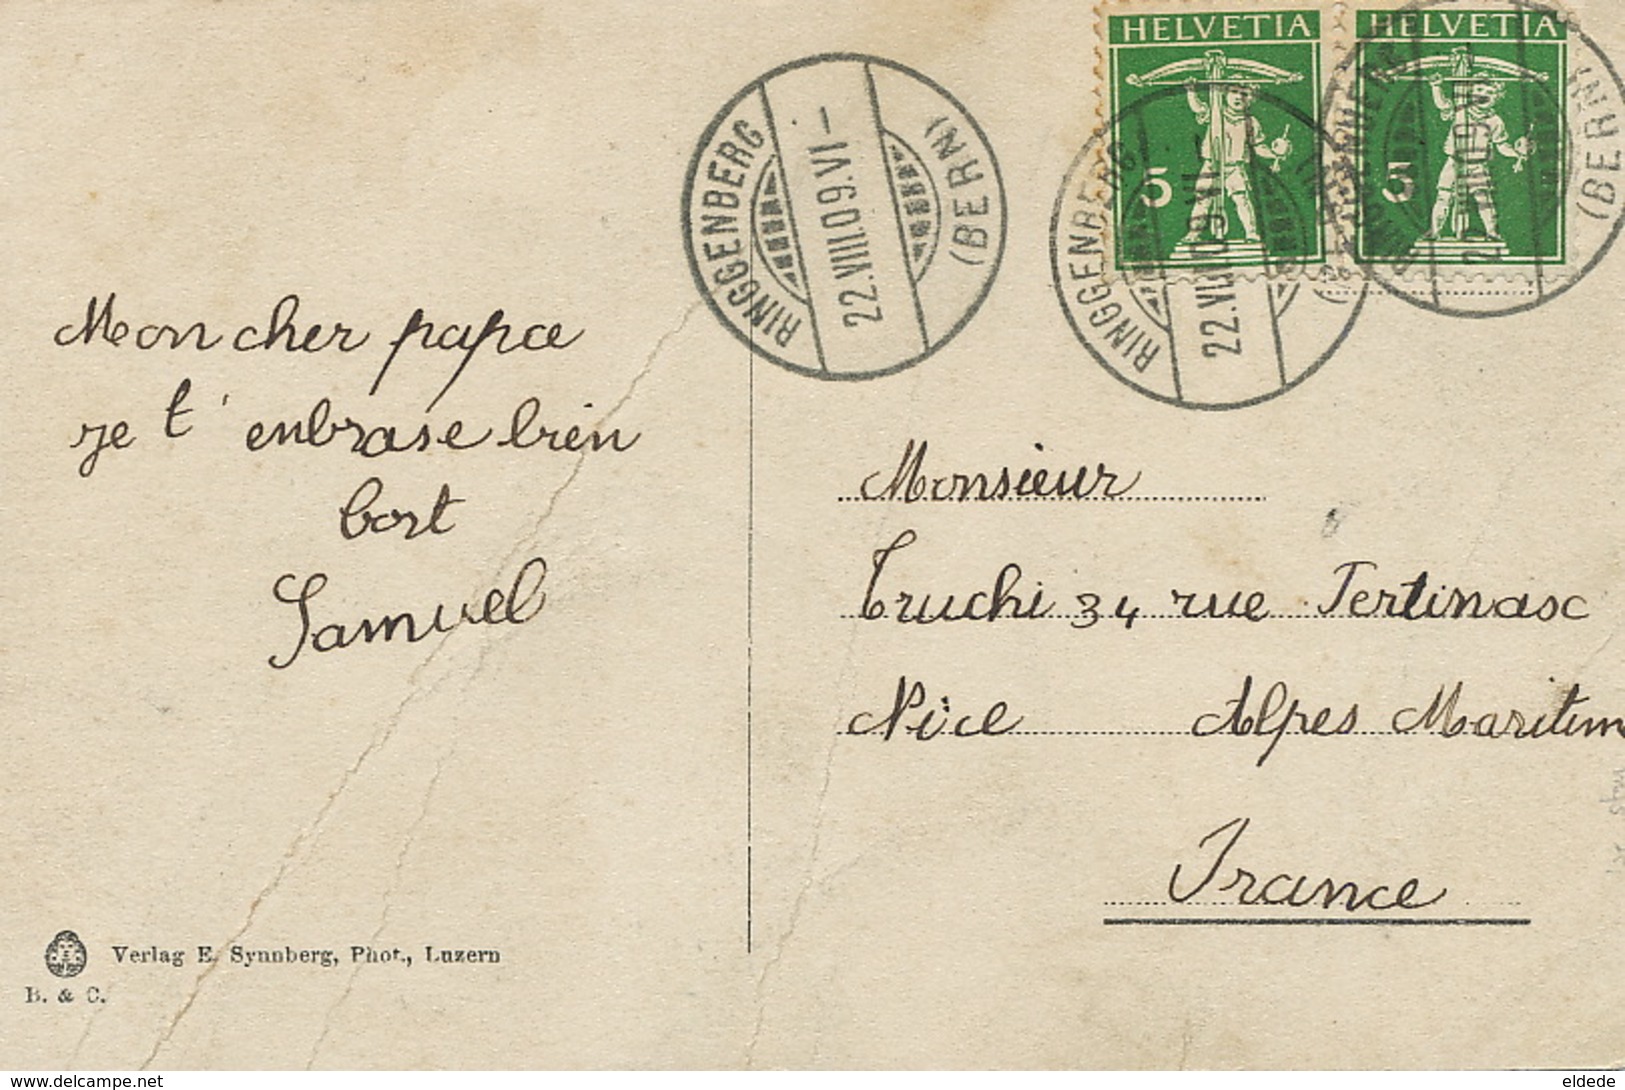 HELVETIA
HELVETIA
5
5
RINGGENBERG
22.VIII.09.VI–
(BERN)
RINGGENBERG
22.VIII.09.VI–
(BERN)
Mon cher papa
je t'enbrase bien
bort
Samuel
Monsieur
Truchi 34 rue Pertinasc
Nice Alpes Maritim
France
Verlag E. Synnberg, Phot., Luzern
B. & C.
www.delcampe.net
eldede